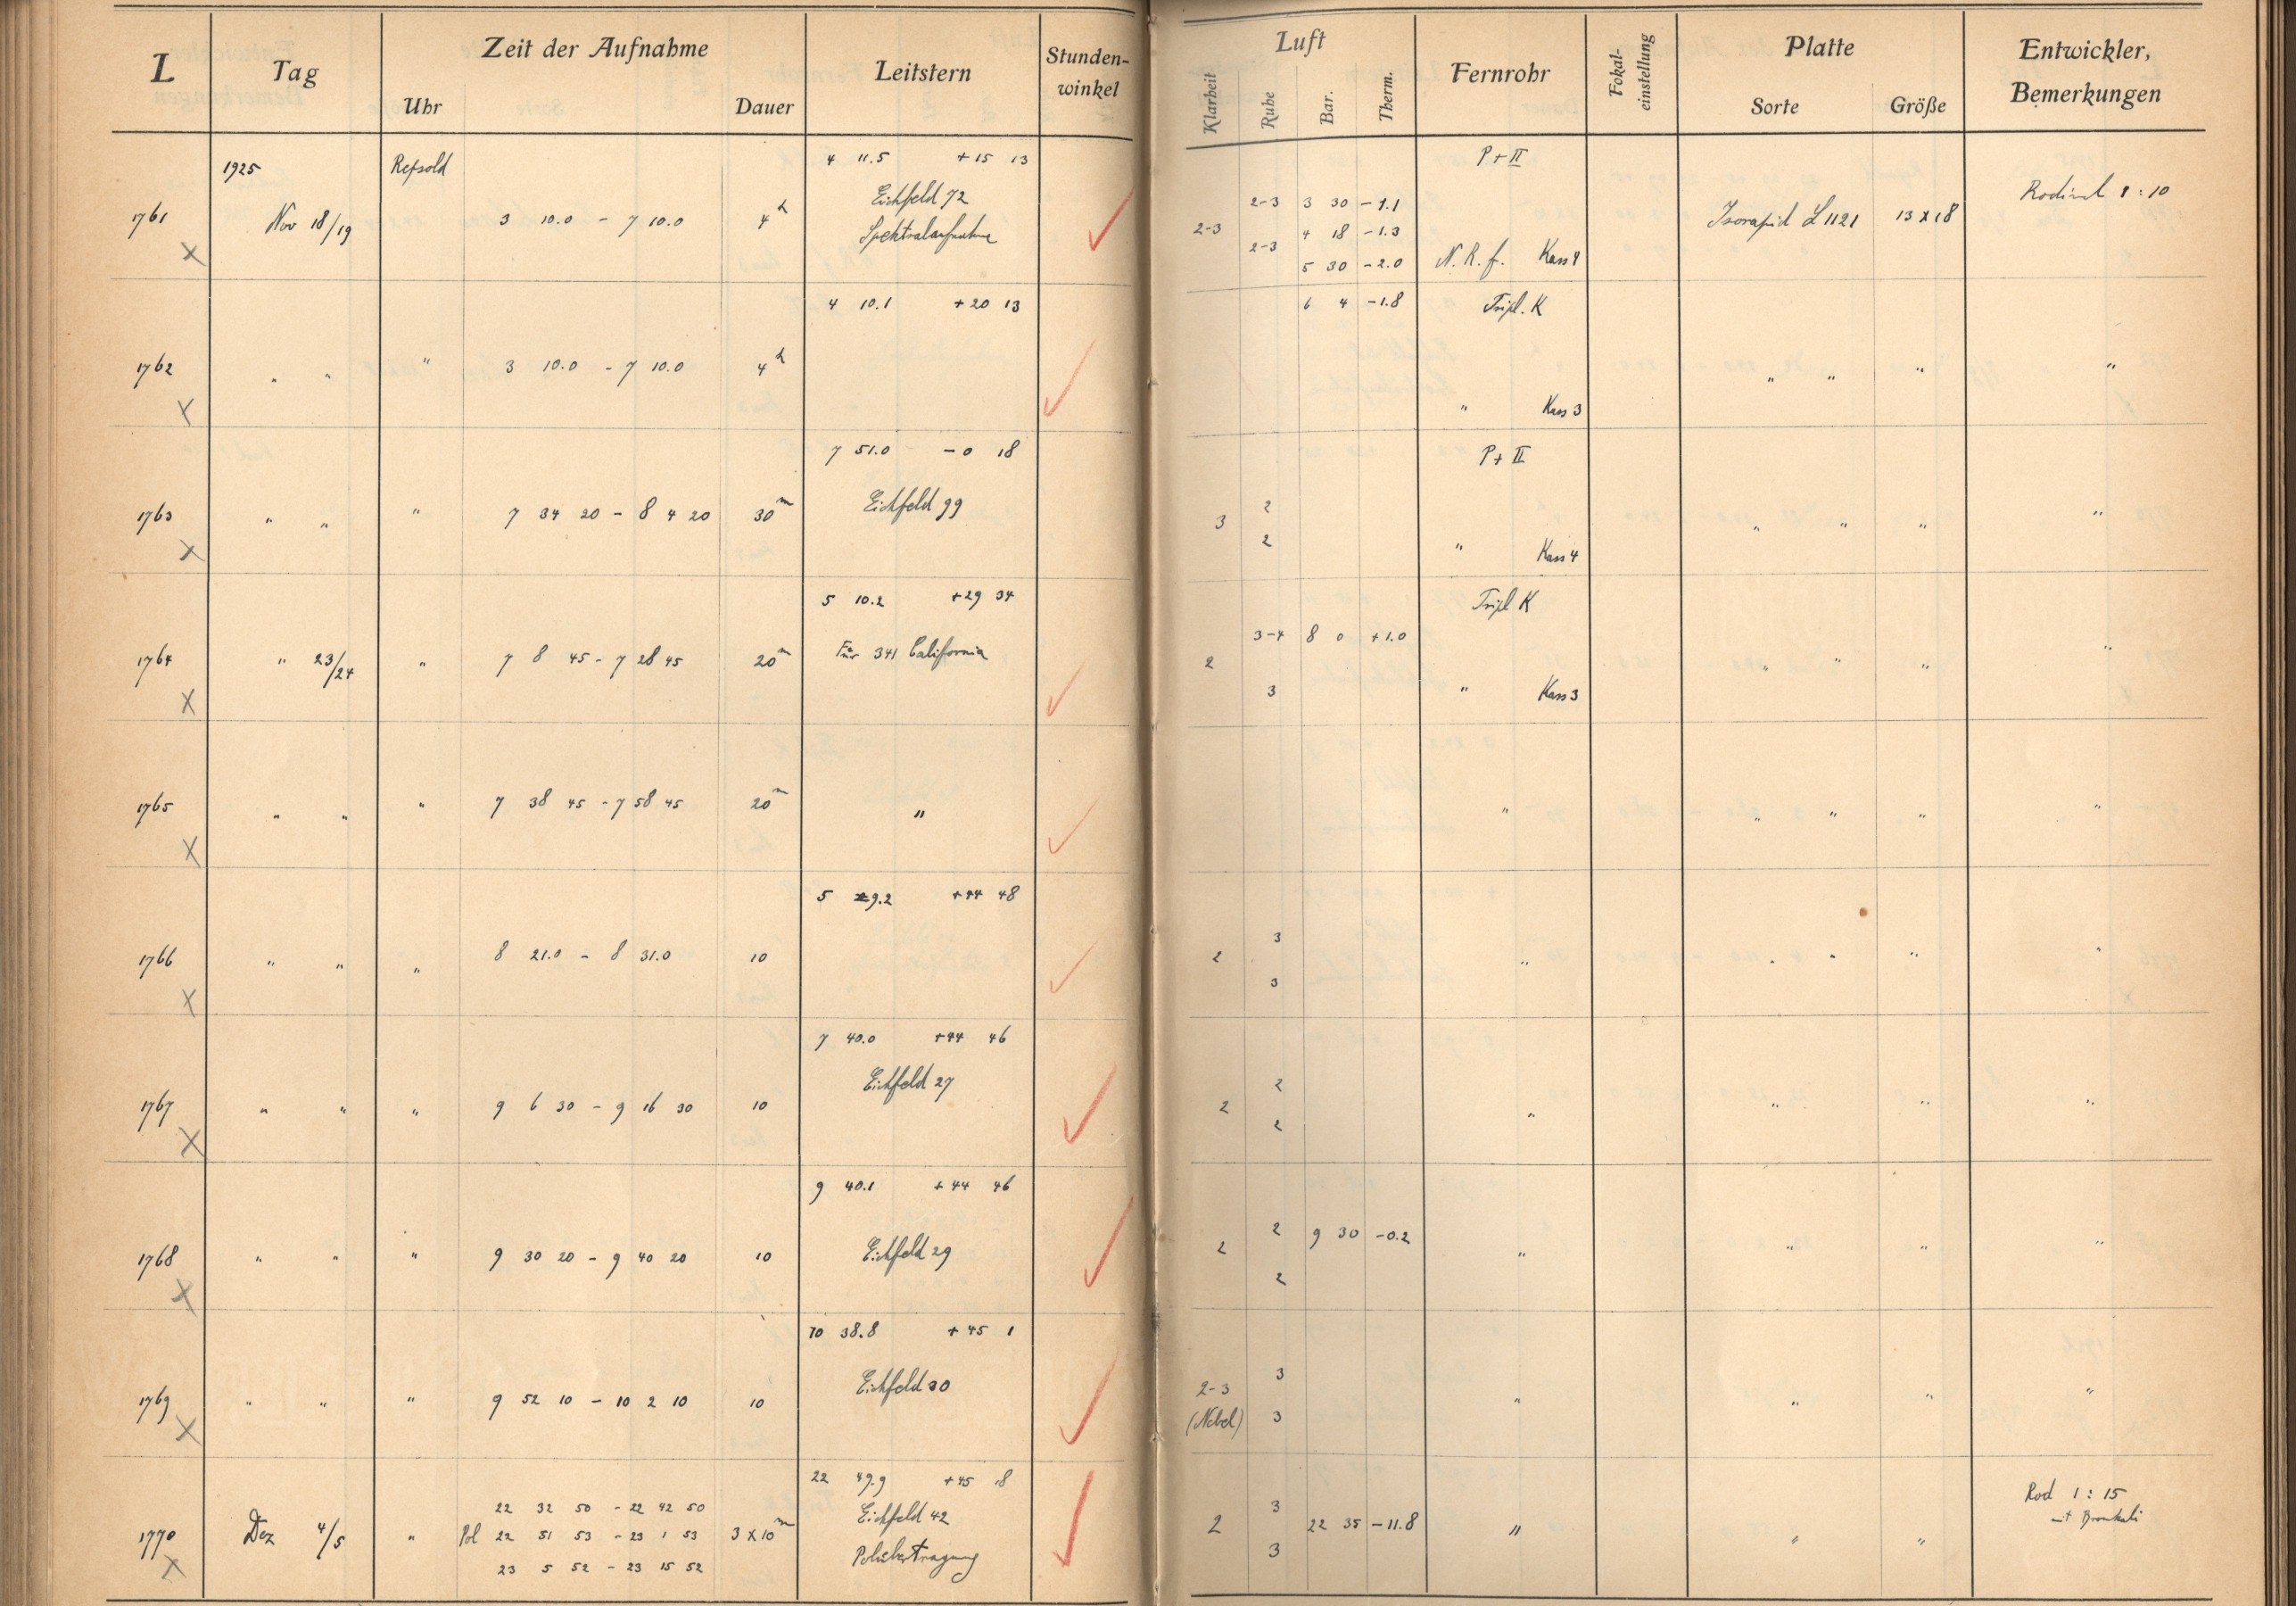 L Tag Zeit der Aufnahme Leitstern Stunden-winkel Luft Fernrohr Fokal-einstellung Platte Entwickler, Bemerkungen
Uhr Dauer Klarheit Ruhe Bar. Therm. Sorte Größe
1925 Repsold 4 11.5 +15 13 P+II
1761 Nov 18/19 3 10.0 - 7 10.0 4h Eichfeld 72 2-3 2-3 3 30 -1.1 Isorapid L 1121 13x18 Rodinal 1:10
X Spektralaufnahme 4 18 -1.3
2-3 5 30 -2.0 N.R.f. Kass 4
4 10.1 +20 13 6 4 -1.8 Tripl. K
1762 " " " 3 10.0 - 7 10.0 4h " " " "
X " Kass 3
7 51.0 -0 18 P+II
1763 " " " 7 34 20 - 8 4 20 30m Eichfeld 99 3 2 " " " "
X 2 " Kass 4
5 10.2 +29 34 Tripl K
1764 " 23/24 " 7 8 45 - 7 28 45 20m Für 341 California 2 3-4 8 0 +1.0 " " " "
X 3 " Kass 3
1765 " " " 7 38 45 - 7 58 45 20m " " " " " "
X
5 9.2 +44 48
1766 " " " 8 21.0 - 8 31.0 10 2 3 " " " " "
X 3
7 40.0 +44 46
1767 " " " 9 6 30 - 9 16 30 10 Eichfeld 27 2 2 " " " "
X 2
9 40.1 +44 46
1768 " " " 9 30 20 - 9 40 20 10 Eichfeld 29 2 2 9 30 -0.2 " " " "
X 2
10 38.8 +45 1
1769 " " " 9 52 10 - 10 2 10 10 Eichfeld 30 2-3 3 " " " "
X (Nebel) 3
22 49.9 +45 18
22 32 50 - 22 42 50 Eichfeld 42 3 Rod 1:15
1770 Dez 4/5 " Pol 22 51 53 - 23 1 53 3x10m 2 22 35 -11.8 " " " mit Bromkali
X 23 5 52 - 23 15 52 Polübertragung 3